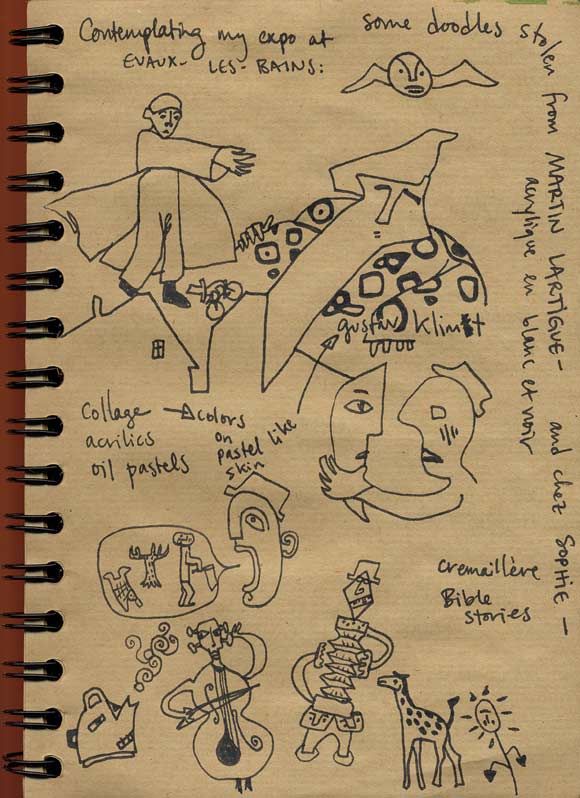 Contemplating my expo at
EVAUX-
LES-BAINS:
some doodles stolen from MARTIN LARTIGUE - and chez SOPHIE -
acrylique en blanc et noir
gustav klimt
collage → colors
acrilics
oil pastels
on
pastel
skin
like
cremaillère
Bible
stories